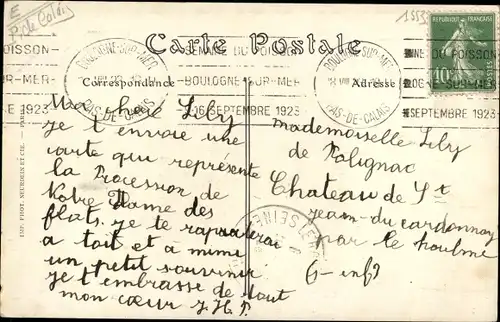 E
P. de Calais
1553
Carte Postale
Correspondance
Adresse
BOULOGNE-SUR-MER
PAS-DE-CALAIS
SEMAINE DU POISSON
BOULOGNE-SUR-MER
2-6 SEPTEMBRE 1923
BOULOGNE-SUR-MER
PAS-DE-CALAIS
SEMAINE DU POISSON
BOULOGNE-SUR-MER
SEPTEMBRE 1923
REPUBLIQUE FRANÇAISE
10
IMP. PHOT. NEURDEIN ET CIE. - PARIS
Ma chère Lily
je t'envoie une
carte qui représente
la Procession de
Notre Dame des
flats. je te rapporterai
a toit et a mimi
un petit souvenir
je t'embrasse de tout
mon cœur J.H.P.
Mademoiselle Lily
de Polignac
Chateau de St
jean-du cardonnay
par le houlme
(S-infr)